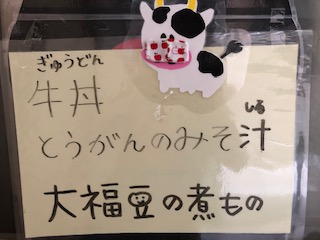 ぎゅうどん
牛丼
とうがんのみそ汁
しる
大福豆の煮もの